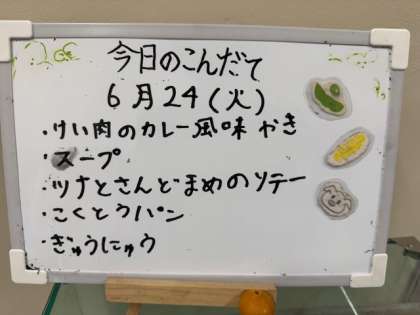 今日のこんだて
6月24(火)
・けい肉のカレー風味やき
・スープ
・ツナとさんどまめのソテー
・こくとうパン
・ぎゅうにゅう